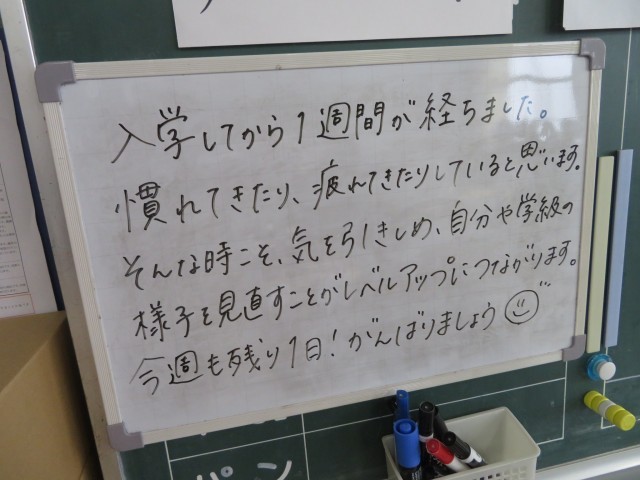 入学してから1週間が経ちました。
慣れてきたり、疲れてきたりしていると思います。
そんな時こそ、気を引きしめ、自分や学級の
様子を見直すことがレベルアップにつながります。
今週も残り1日！がんばりましょう